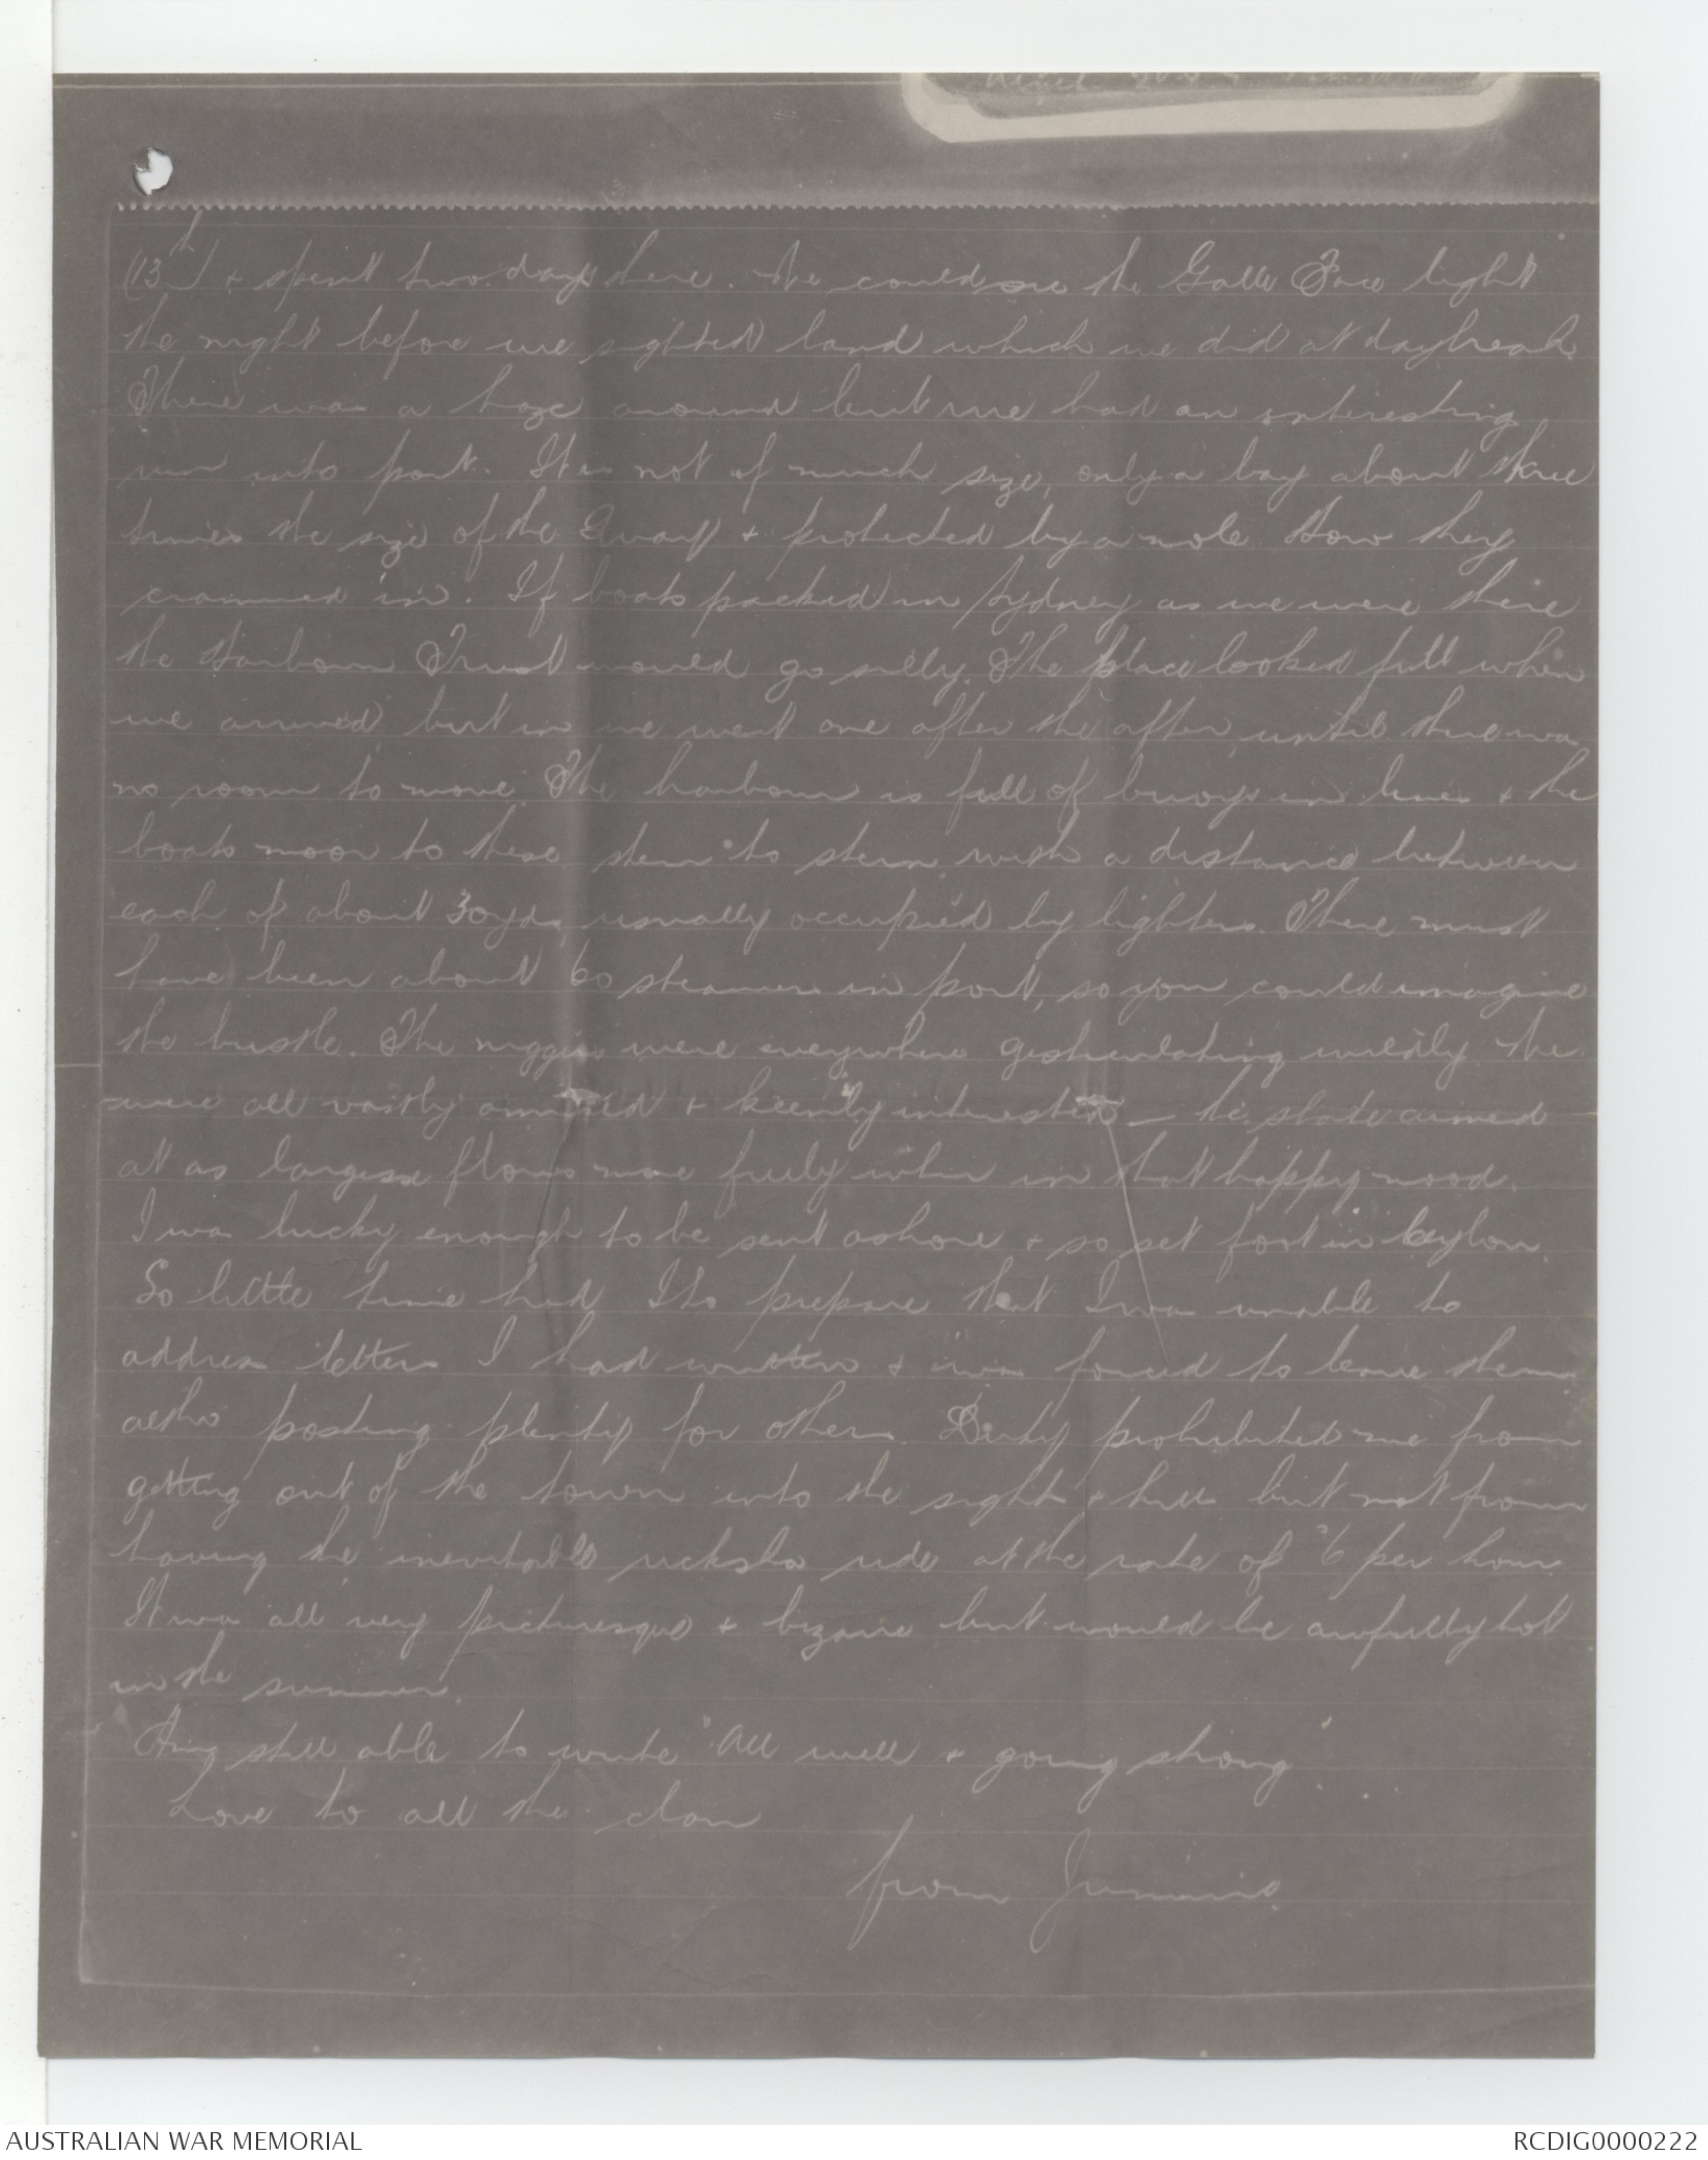 (13th) & spent two days there. We could see the Galle Face light
the night before we sighted land which we did at daybreak.
There was a haze around but we had an interesting
run into port. It is not of much size, only a bay about three
times the size of the Quay & protected by a mole. How they
crammed in. If boats packed in Sydney as we were there
the Harbour Trust would go silly. The place looked full when
we arrived, but in we went one after the after, until there was
no room to move. The harbour is full of buoys in lines & the
boats moor to these stem to stern, with a distance between
each of about 30yds, usually occupied by lighters. There must
have been about 60 steamers in port, so you could imagine
the bustle. The niggers were everywhere gesticulating wildly. We
were all vastly amused & keenly interested - the state aimed
at as largesse flows more freely when in that happy mood.
I was lucky enough to be sent ashore & so set foot in Ceylon.
So little time had I to prepare that I was unable to
address letters I had written & was forced to leave them
altho posting plenty for others. Duty prohibited me from
getting out of the town into the sights & hills but not from
having the inevitable ricksha ride at the rate of 6 per hour
It was all very picturesque & bizarre but would be awfully hot
in the summer.
Am still able to write "All well & going strong"
Love to all the clan
from Jimmie
AUSTRALIAN WAR MEMORIAL
RCDIG0000222